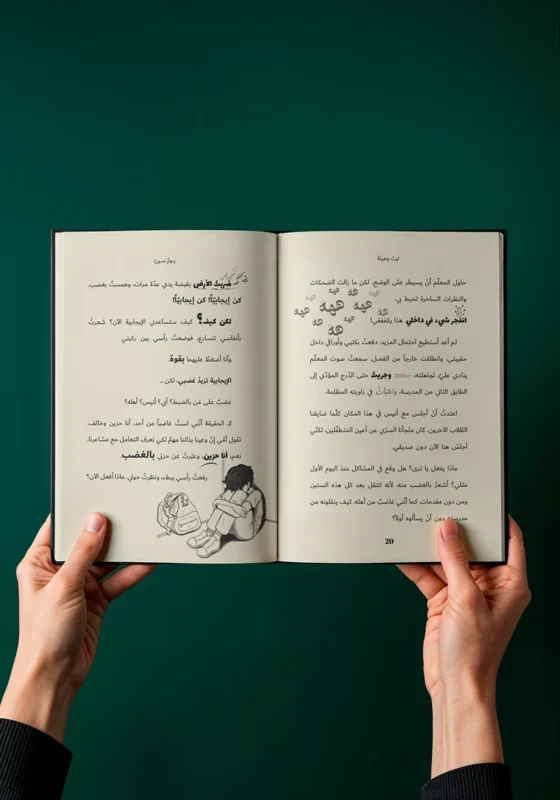 ليث وهيلة
حاول المعلّم أنْ يسيطر على الوضع، لكن ما زالت الضحكات
والنظرات الساخرة تحيط بي.
هه هه هه هه هه هه هه هه هه
انفجر شيء في داخلي هذا يكفففي!
لم أعد أستطيع احتمال المزيد. دفعتُ بكتبي وأوراقي داخل
حقيبتي، وانطلقت خارجاً من الفصل. سمعتُ صوت المعلّم
ينادي عليّ. تجاهلته، وجريتُ حتى الدّرج المؤدّي إلى
الطابق الثاني من المدرسة، واختبأتُ في زاويته المظلمة.
اعتدتُ أنْ أجلس مع أنيس في هذا المكان كلّما ضايقنا
الطّلاب الآخرون. كان ملجأنا السرّي عن أعين المتطفّلين. لكنّي
أجلسُ هنا الآن دون صديقي.
ماذا يفعل يا ترى؟ هل وقع في المشاكل منذ اليوم الأول
مثلي؟ أشعرُ بالغضب منه، لأنّه انتقل بعد كل هذه السنين
ومن دون مقدمات. كما أنّني غاضبٌ من أهله. كيف ينقلونه من
مدرسته دون أنْ يسألوه أولاً؟
20
يومٌ سيئ
ضربتُ الأرض بقبضة يدي عدّة مرات، وهمستُ بغضب.
كن إيجابيّاً! كن إيجابيّاً!
لكن كيف؟ كيف ستساعدني الإيجابية الآن؟ شعرتُ
بأنفاسي تتسارع، فوضعتُ رأسي بين ركبتي
وأنا أضغط عليهما بقوة.
الإيجابية تزيدُ غضبي، لكن...
غضبٌ على مَن بالضبط؟ أبي؟ أنيس؟ أهله؟
لا. الحقيقة أنّني لستُ غاضباً من أحد. أنا حزين وخائف.
تقول أمّي إنّ وعينا بذاتنا مهمّ لكي نعرف التعامل مع مشاعرنا.
نعم، أنا حزين. وعبّرتُ عن حزني بالغضب.
رفعتُ رأسي ببطء، ونظرتُ حولي. ماذا أفعل الآن؟